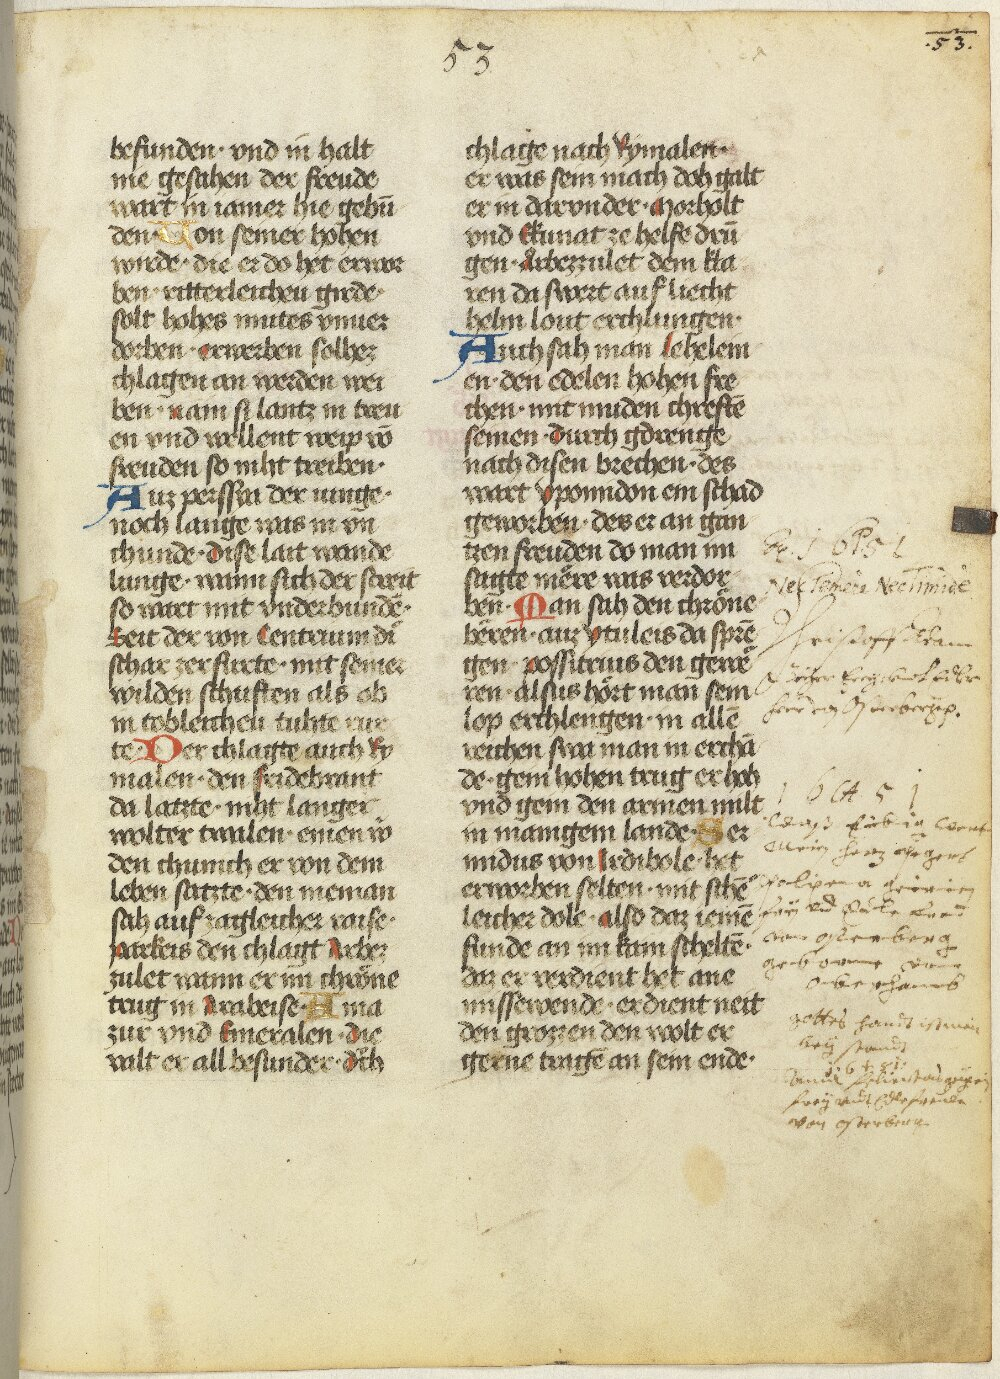 53
.53.
befunden· vnd in halt
nie gesahen der freude
wart in iamer hie gebū
den· Von seiner hohen
wirde· die er do het erwor
ben· ritterleichen girde·
solt hohes mutes vnuer
dorben· erwerben solher
chlagen an werden wei
ben· nam si lantz in treu
en vnd wellent weip vō
freuden so niht treiben·
Auz perssya der iunge·
noch lange was in vn
chunde· dise lait wande
lunge· wann sich der streit
so wart mit vnderbundē·
Leut der von Centrium di
schar zer furte· mit seiner
wilden schuften als ob
in tobleichen tuhte rur
te· Der chlagte auch ky
malen· den fridebrant
da latzte· niht langer
wolter twalen· einen vō
den chunich er von dem
leben satzte· den nieman
sah auf zagleicher raise·
parkeis den chlagt Arbez
zulet wann er im chrōne
trug in Arabeise· Ama
zur vnd Emeralen· die
valt er all besunder· dͦrh
chlage nach kymalen·
er was sein mach doh galt
er in darvnder· Morholt
vnd Ekunat ze helfe drū
gen· Arbezzulet dem kla
ren da swert auf liecht
helm lout erchlungen·
Auch sah man Lehelein
en· den edelen hohen fre
chen· mit muden chreftē
seinen· durch gdrenge
nach disen brechen· des
wart yponnidon ein schad
geworben· des er an gan
tzen freuden do man im
sagte mēre was verdor
ben· Man sah den chrōne
bēren· auz ytuleis da sprē
gen· possitrius den gerrē
ren· alsus hōrt man sein
lop erchlengen· in allē
reichen swa man in erchā
de· gein hohen trug er hoh
vnd gein den armen milt
in manigem lande· Ser
nidus von Ardibole· het
erworben selten· mit schē
leicher dole· also daz iemē
funde an im kain scheltē·
daz er verdient het ane
missewende· erdient neit
den grozzen den wolt er
gerne tragē an sein ende·
Nec Temere Nec Timide
von osterberg
gottes handt ist mein
bey standt
von osterberg